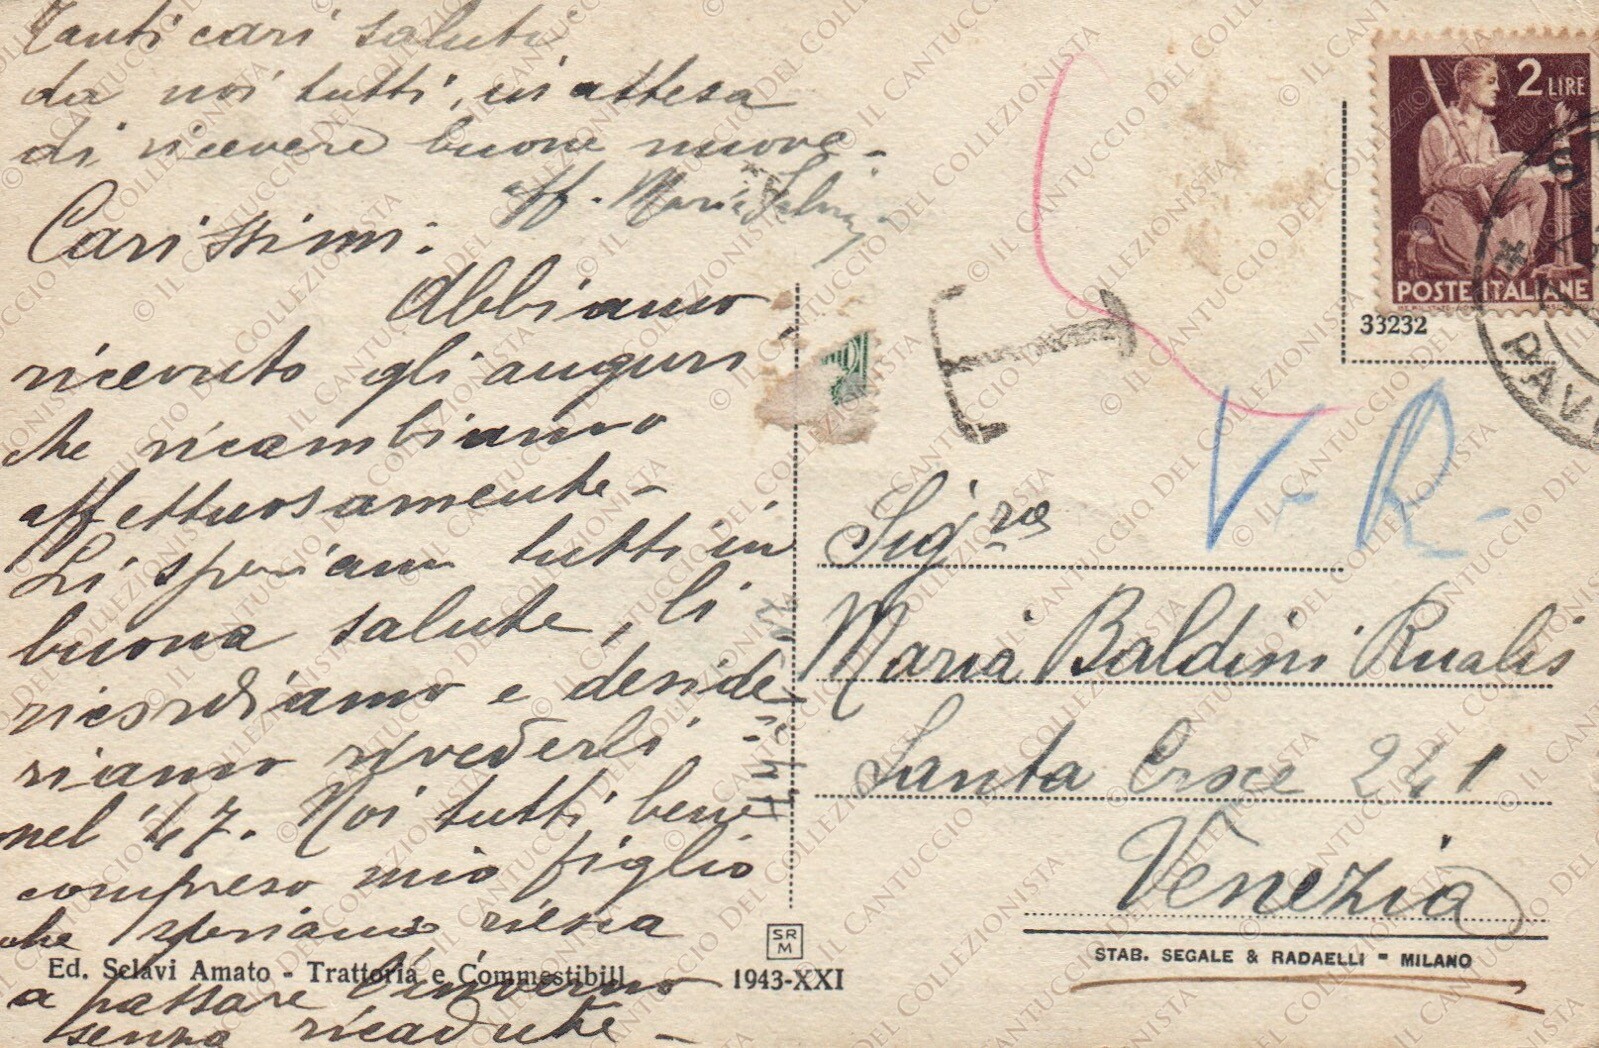 Tanti cari saluti
da noi tutti, in attesa
di ricevere buone nuove -
aff. Maria
Carissimi:
Abbiamo
ricevuto gli auguri
che ricambiamo
affettuosamente -
Li speriamo tutti in
buona salute, li
ricordiamo e deside
riamo rivederli
nel '47. Noi tutti bene
compreso mio figlio
che speriamo riesca
a passare l'inverno
senza ricadute -
Ed. Sclavi Amato - Trattoria e Commestibili
SRM
1943-XXI
2 LIRE
POSTE ITALIANE
33232
PAV
T
V - R -
Sig.ra
Maria Baldini Rualis
Santa Croce 241
Venezia
STAB. SEGALE & RADAELLI - MILANO
© IL CANTUCCIO DEL COLLEZIONISTA